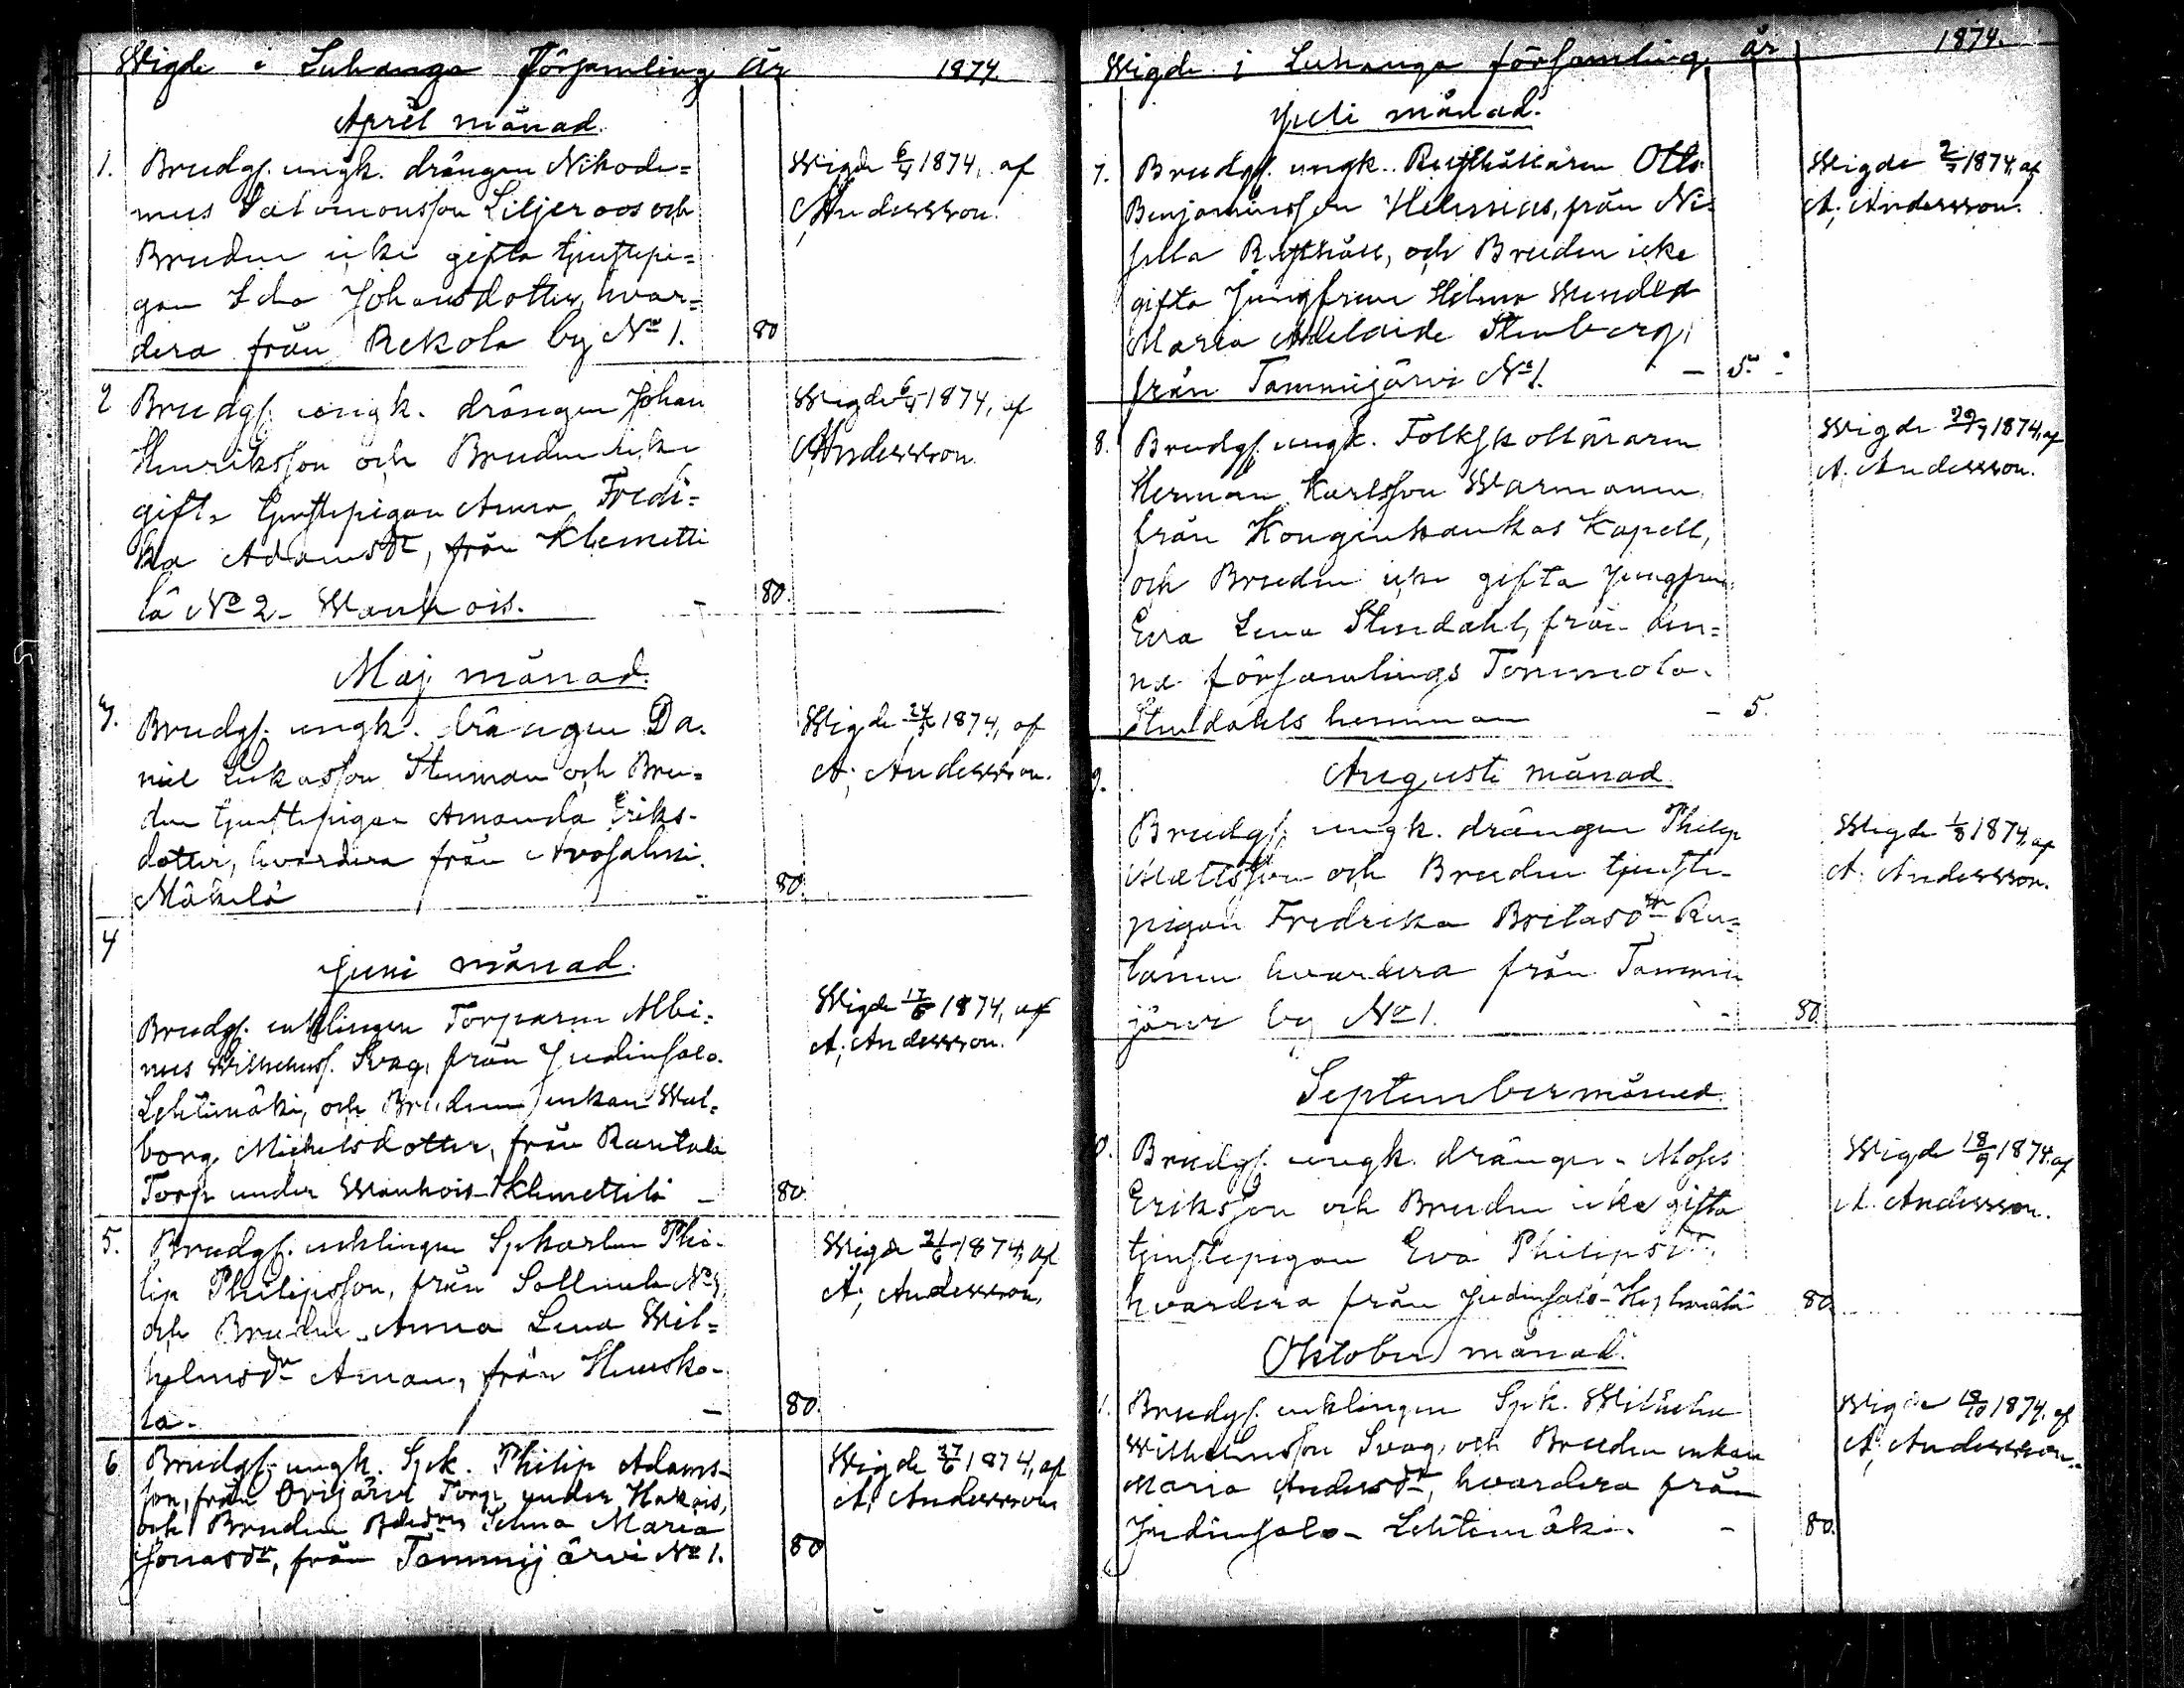 Wigde i Luhanga Församling År 1874
April månad.
1. Brudg. ungk. drängen Nikode=
mus Salomonsson Liljeroos och
Bruden icke gifta tjenstepi=
gan Ida Johansdotter, hvar=
dera från Rekola by No 1. 80
Wigde 6/4 1874, af
A. Andersson.
2 Brudg. ungk. drängen Johan
Henriksson och Bruden icke
gifta tjenstepigan Anna Fredi=
ka Adamsdr, från Klemetti
lä No 2 - Wanhois. - 80.
Wigde 6/4 1874, af
A. Andersson.
Maj månad.
3. Brudg. ungk. drängen Da=
niel Lukasson Stenman och Bru=
den tjenstepigan Amanda Eriks=
dotter, hvardera från Avosalmi
Mäkelä - 80.
Wigde 24/5 1874, af
A. Andersson.
4
Juni månad.
Brudg. enklingen Torparen Albi=
nus Wilhelmss. Svag, från Judinsalo-
Lehtimäki, och Bruden enkan Wal=
borg Michelsdotter, från Rantala
Torp under Wanhois-Klemettilä - 80.
Wigde 17/6 1874, af
A. Andersson.
5. Brudg. enklingen Spkarlen Phi=
lip Philipsson, från
och Bruden Anna Lena Wil=
helmsdr Aman, från
la. - 80.
Wigde 21/6 1874, af
A. Andersson.
6 Brudg. ungk. Spk. Philip Adams-
son, från Orijärvi Torp under Hakois,
och Bruden Selma Maria
Jonasdr, från Tammijärvi No 1. 80
Wigde 27/6 1874, af
A. Andersson
Wigde i Luhanga församling år 1874.
Juli månad.
7. Brudg. ungk. Rusthållaren Otto
Benjaminsson Helenius, från Ni=
silla Rusthåll, och Bruden icke
gifta Jungfrun Hilma Wendla
Maria Adelaide Stenberg,
från Tammijärvi No 1. - 5. -
Wigde 2/7 1874, af
A. Andersson.
8. Brudg. ungk. Folkskolläraren
Herman Karlsson Warmanen
från Konginkankas Kapell,
och Bruden icke gifta Jungfrun
Eva Lena Stendahl, från den=
na församlings Tommola-
Stendahls hemman - 5.
Wigde 29/7 1874, af
A. Andersson.
9.
Augusti månad
Brudg. ungk. drängen Philip
Mattsson och Bruden tjenste-
pigan Fredrika Britasdr Ru=
tanen hvardera från Tammi
järvi by No 1. - 80.
Wigde 1/8 1874, af
A. Andersson.
September månad.
0. Brudg. ungk. drängen Moses
Eriksson och Bruden icke gifta
tjenstepigan Eva Philipsdr,
hvardera från Judinsalo- 80
Wigde 18/9 1874. af
A. Andersson.
Oktober månad.
1. Brudg. enklingen Spk. Wilhelm
Wilhelmsson Svag, och Bruden enkan
Maria Andersdr, hvardera från
Judinsalo - Lehtimäki. - 80.
Wigde 18/10 1874. af
A. Andersson.